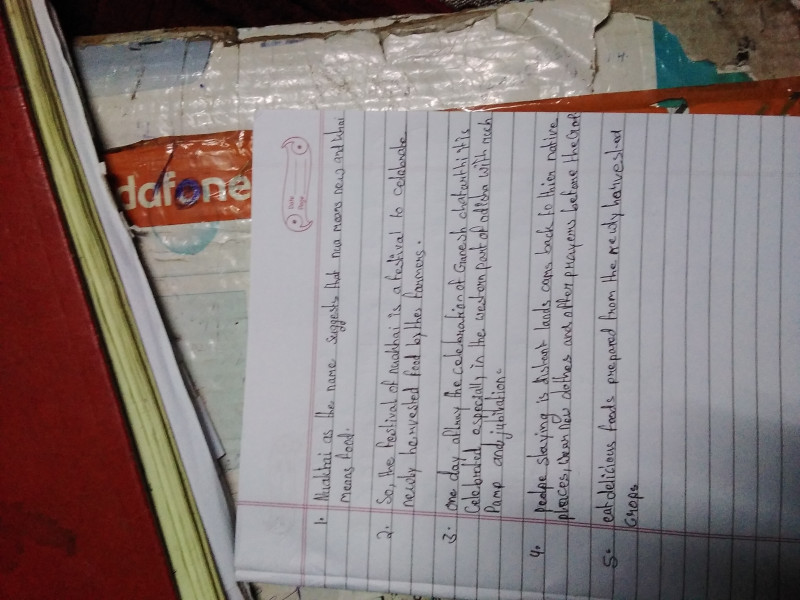 dafone
Date
Page
1. Nuakhai as the name suggests that nua means new and khai
means food.
2. So, the festival of nuakhai is a festival to celebrate
newly hervested food by ther farmers.
3. One day aftway the celebration of Ganesh chatarthi it is
Celebrated especially in the western part of odisha with much
Pamp and jubilation.
4. peolpe staying is distant lands cams back to thier native
places, wear new clothes and offer prayers before the Crop
5. eat delicious foods prepared from the newly harvest-ed
Crops